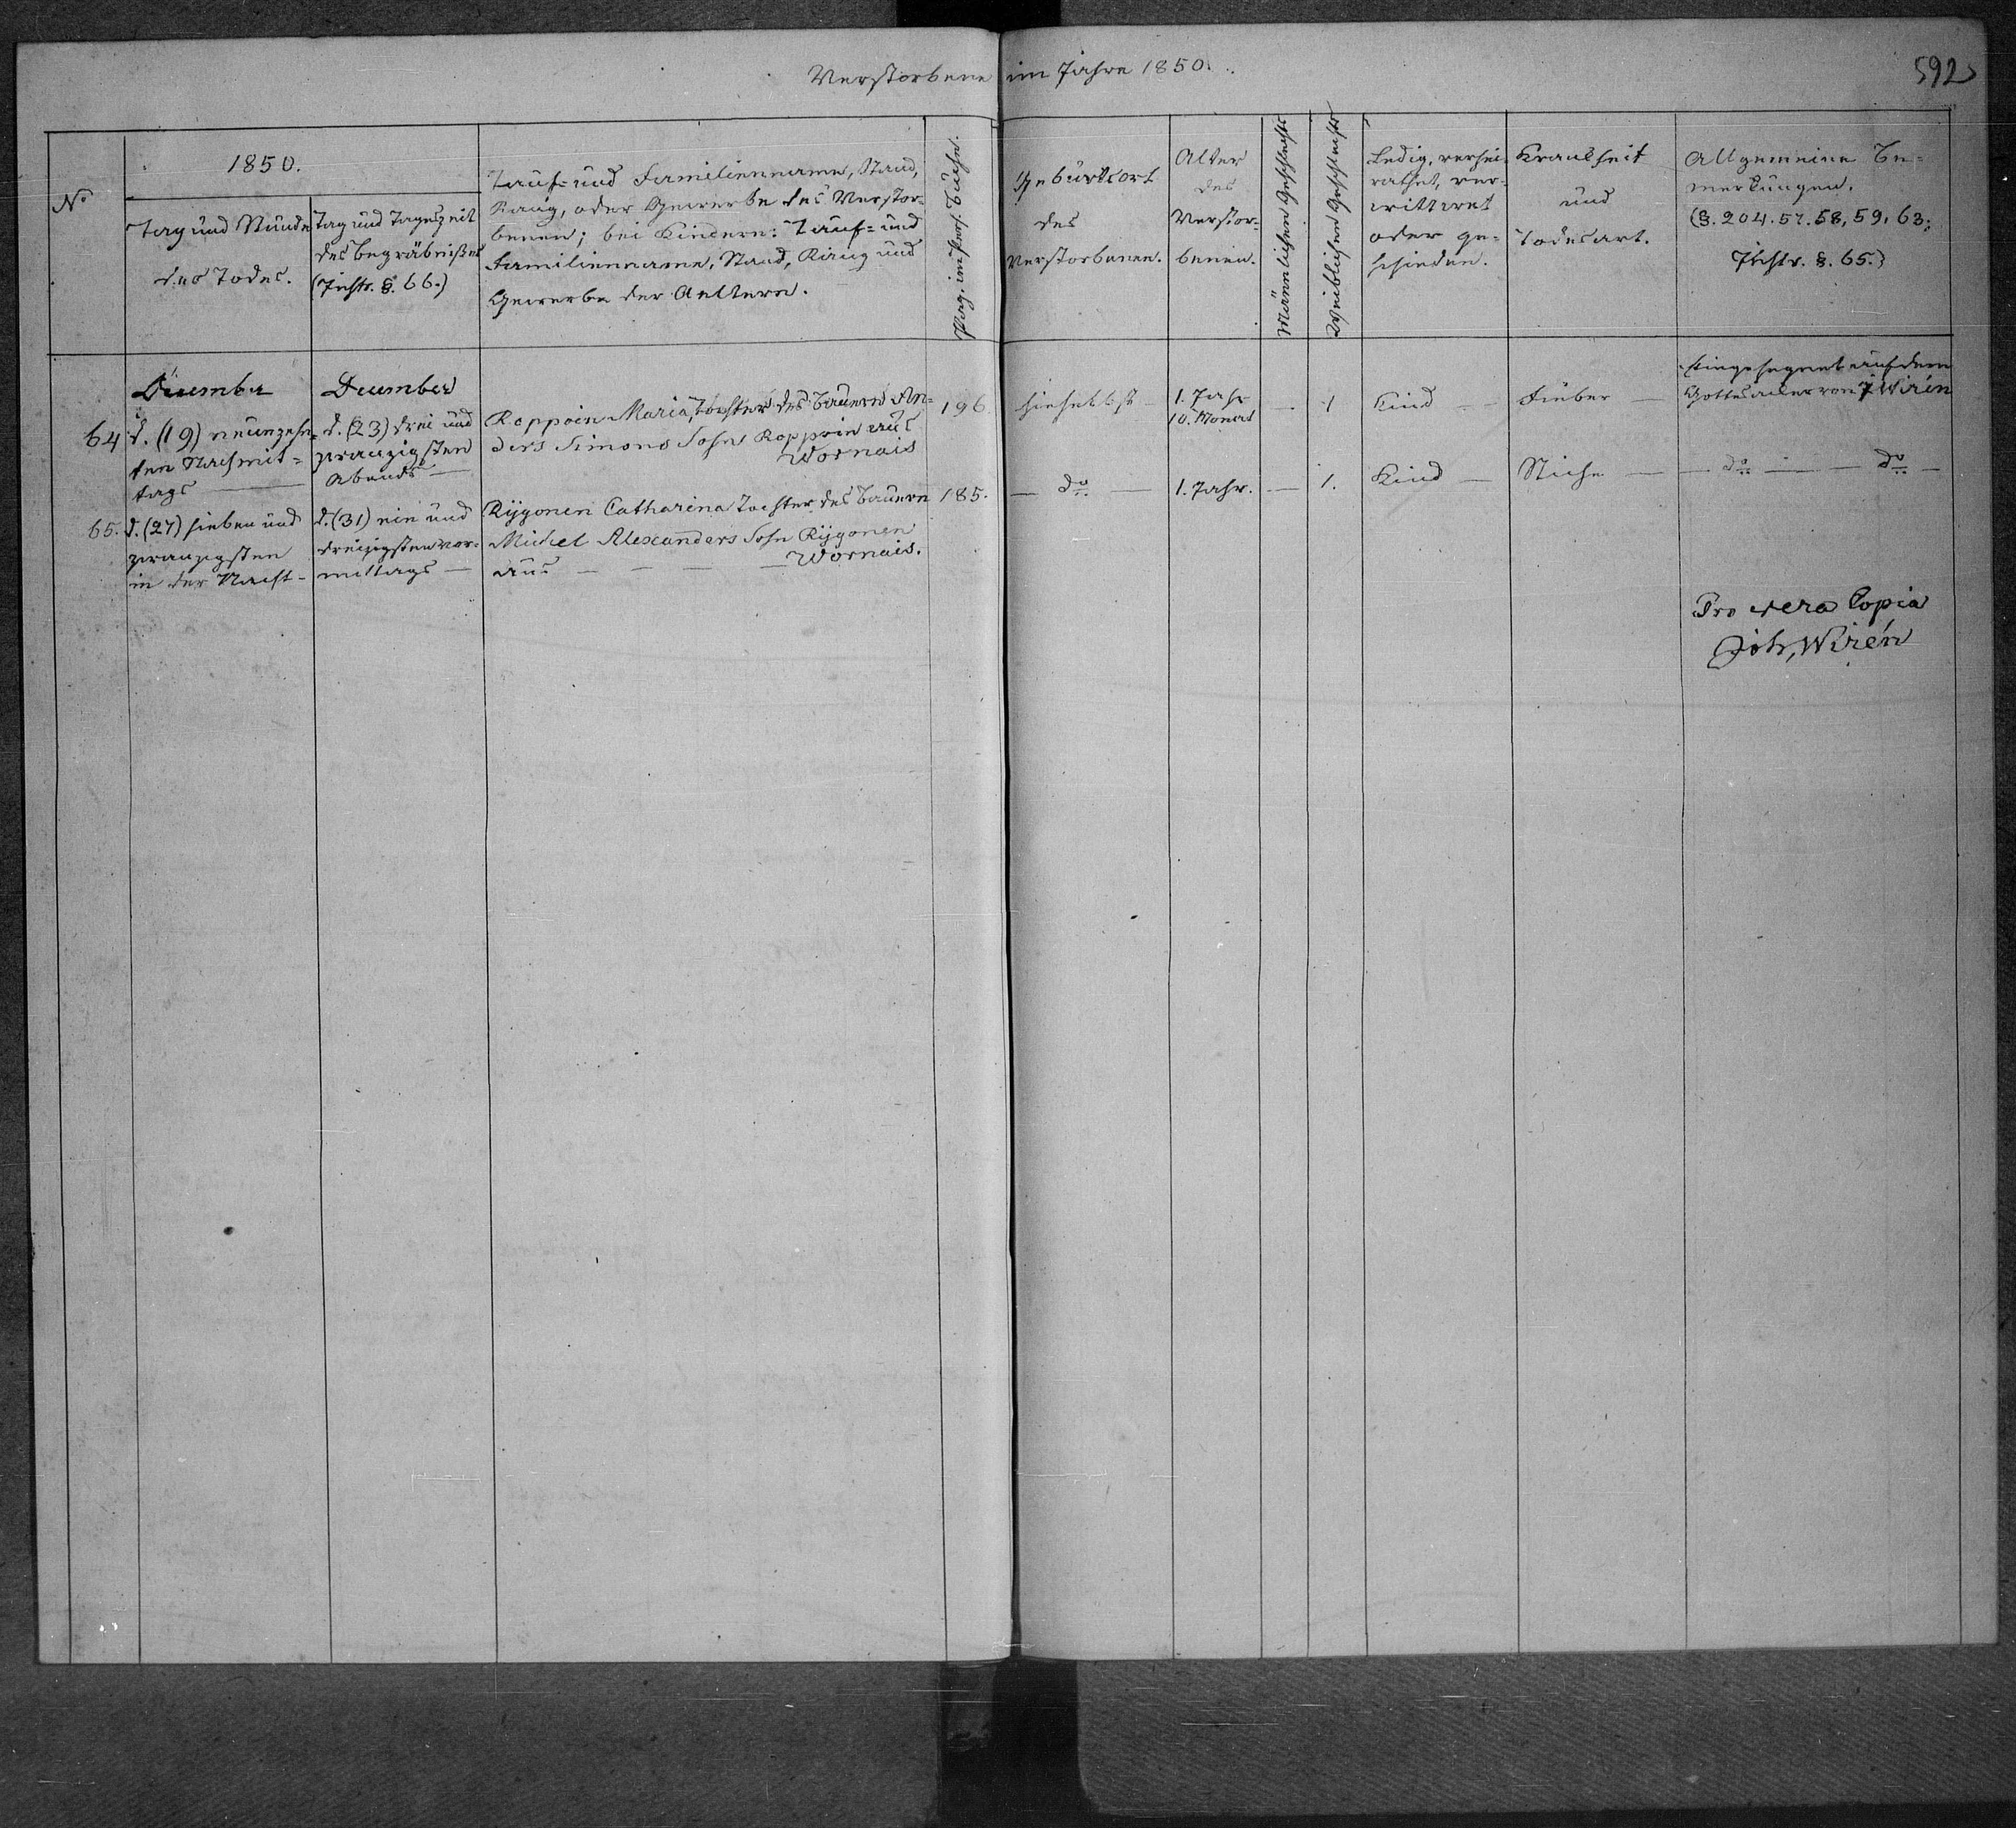 Verstorbene im Jahre 1850.
592
No
1850.
Tag und Stunde
des Todes.
Tag und Tageszeit
des Begräbnißes
(Instr. §. 66.)
Tauf= und Familienname, Stand,
Rang, oder Gewerbe des Verstor-
benen; bei Kindern: Tauf= und
Familienname, Stand, Rang und
Gewerbe der Aeltern.
Pag. im Pers. Buche.
Geburtsort
des
Verstorbenen.
Alter
des
Verstor-
benen.
Männlichen Geschlechts
Weiblichen Geschlechts
Ledig, verhei-
rathet, ver-
wittwet
oder ge-
schieden.
Krankheit
und
Todesart.
Allgemeine Be-
merkungen.
(§. 204. 57. 58, 59, 63;
Instr. §. 65.)
64
December
d. (19) neunzehn-
ten Nachmit=
tags
December
d. (23) drei und
zwanzigsten
Abends
Roppoin Maria, Tochter des Bauern An-
ders Simons Sohn Roppoin aus
Wornais
196.
hieselbst
1. Jahr
10. Monat
1
Kind
Fieber
Eingesegnet auf dem
Gottesacker von J Wirén
65.
d. (27) sieben und
zwanzigsten
in der Nacht
d. (31) ein und
dreizigsten vor-
mittags
Rÿgonen Catharina Tochter des Bauern
Michel Alexanders Sohn Rÿgonen
aus Wornais.
185.
do
1. Jahr.
1.
Kind
Stiche
do do
Pro vera Copia
Joh, Wirén